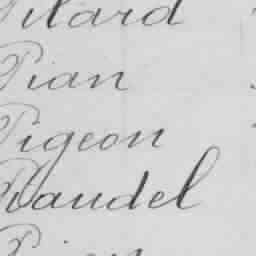 Pilard
Pian
Pigeon
Raudel